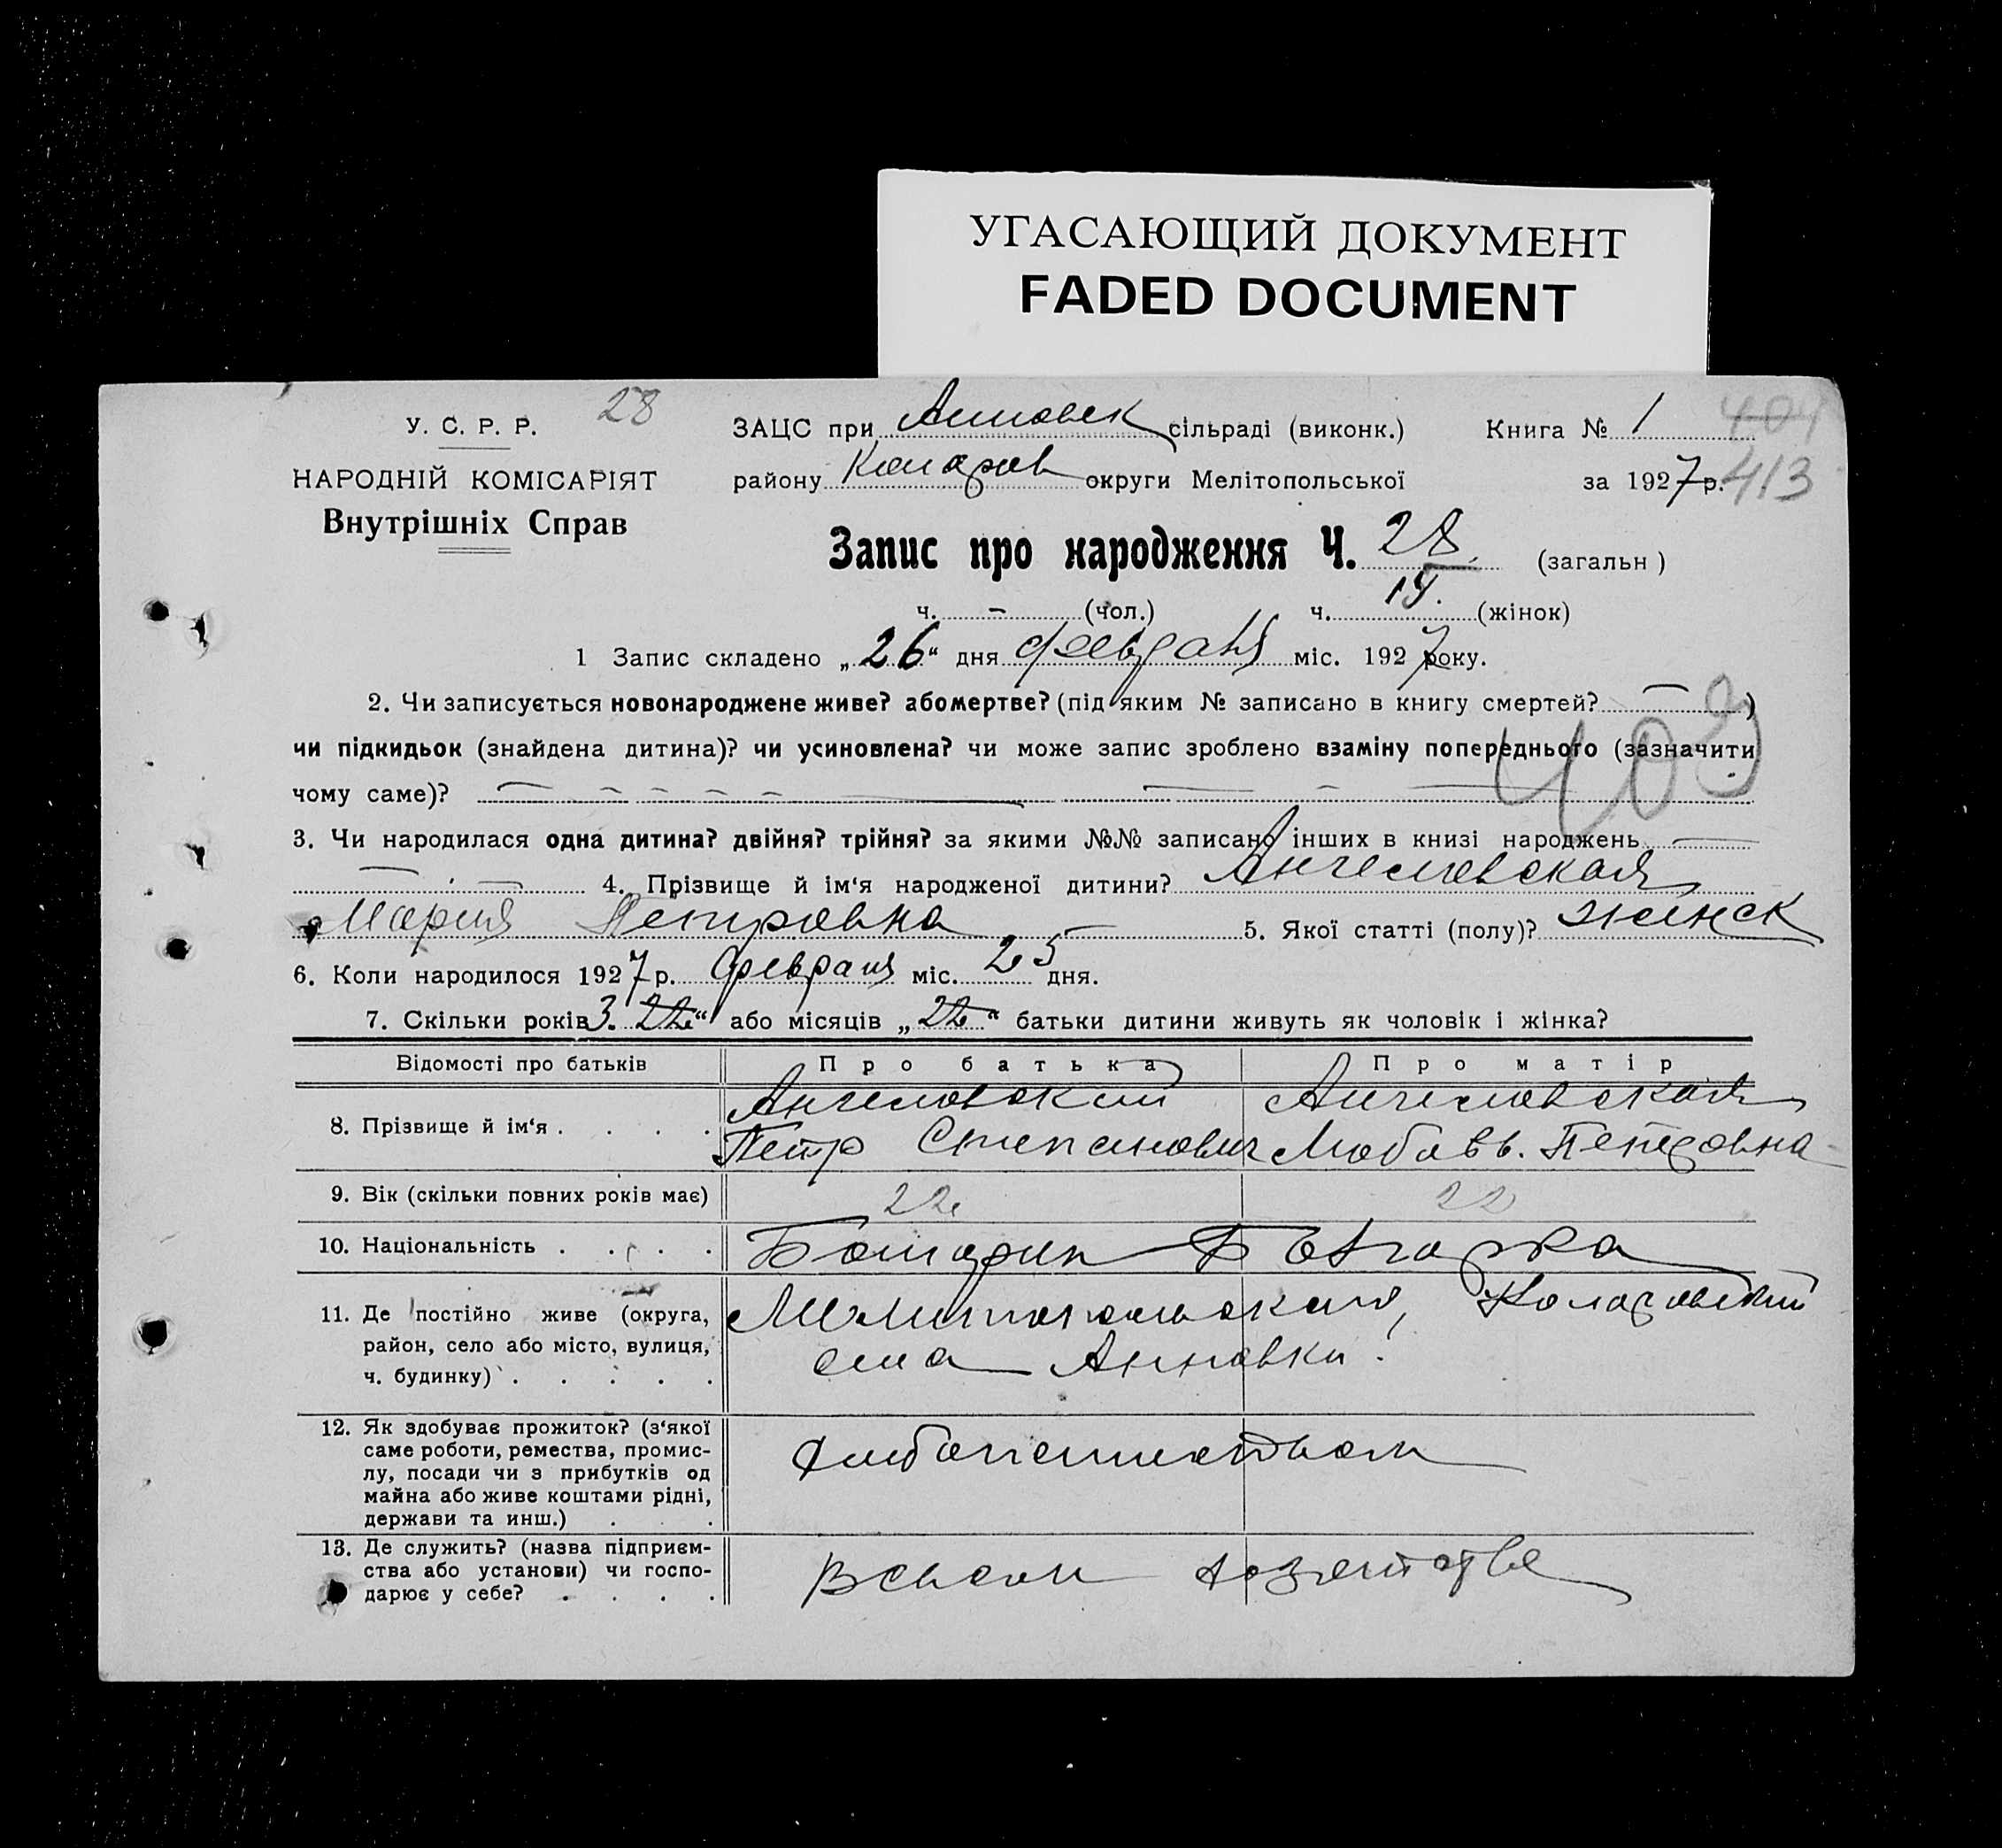 УГАСАЮЩИЙ ДОКУМЕНТ
FADED DOCUMENT
У. С. Р. Р. 28
НАРОДНІЙ КОМІСАРІЯТ
Внутрішніх Справ
ЗАЦС при Анновск сільраді (виконк.) Книга № 1 404
району Коларов округи Мелітопольської за 1927 р. 413
Запис про народження Ч. 28 (загальн )
ч. – (чол.) ч. 14. (жінок)
1 Запис складено „26“ дня февраля міс. 1927 року.
2. Чи записується новонароджене живе? або мертве? (під яким № записано в книгу смертей? — )
чи підкидьок (знайдена дитина)? чи усиновлена? чи може запис зроблено взаміну попереднього (зазначити
чому саме)? 403
3. Чи народилася одна дитина? двійня? трійня? за якими №№ записано інших в книзі народжень —
4. Прізвище й ім‘я народженої дитини? Ангеловская
Мария Петровна 5. Якої статті (полу)? жінск
6. Коли народилося 1927 р. Февраля міс. 25 дня.
7. Скільки років 3. 22“ або місяців „22“ батьки дитини живуть як чоловік і жінка?
Відомості про батьків Про батька Про матір
8. Прізвище й ім‘я . . . . Ангеловский Ангеловская
Петр Степанович Любовь. Петровна
9. Вік (скільки повних років має) 22 22
10. Національність . . . . Болгарин Болгарка
11. Де постійно живе (округа,
район, село або місто, вулиця,
ч. будинку) . . . . .
Мелитопольского, Коларовский
села Анновки.
12. Як здобуває прожиток? (з‘якої
саме роботи, ремества, промис-
лу, посади чи з прибутків од
майна або живе коштами рідні,
держави та инш.) . . .
хлебопашеством
13. Де служить? (назва підприєм-
ства або установи) чи госпо-
дарює у себе? . . . .
В своем хозяйстве